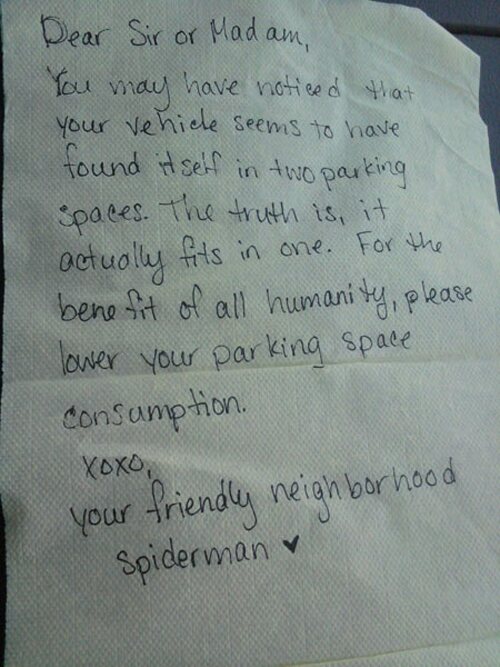 Dear Sir or Madam,
You may have noticed that
your vehicle seems to have
found itself in two parking
spaces. The truth is, it
actually fits in one. For the
benefit of all humanity, please
lower your parking space
consumption.
xoxo,
your friendly neighborhood
spiderman ♥